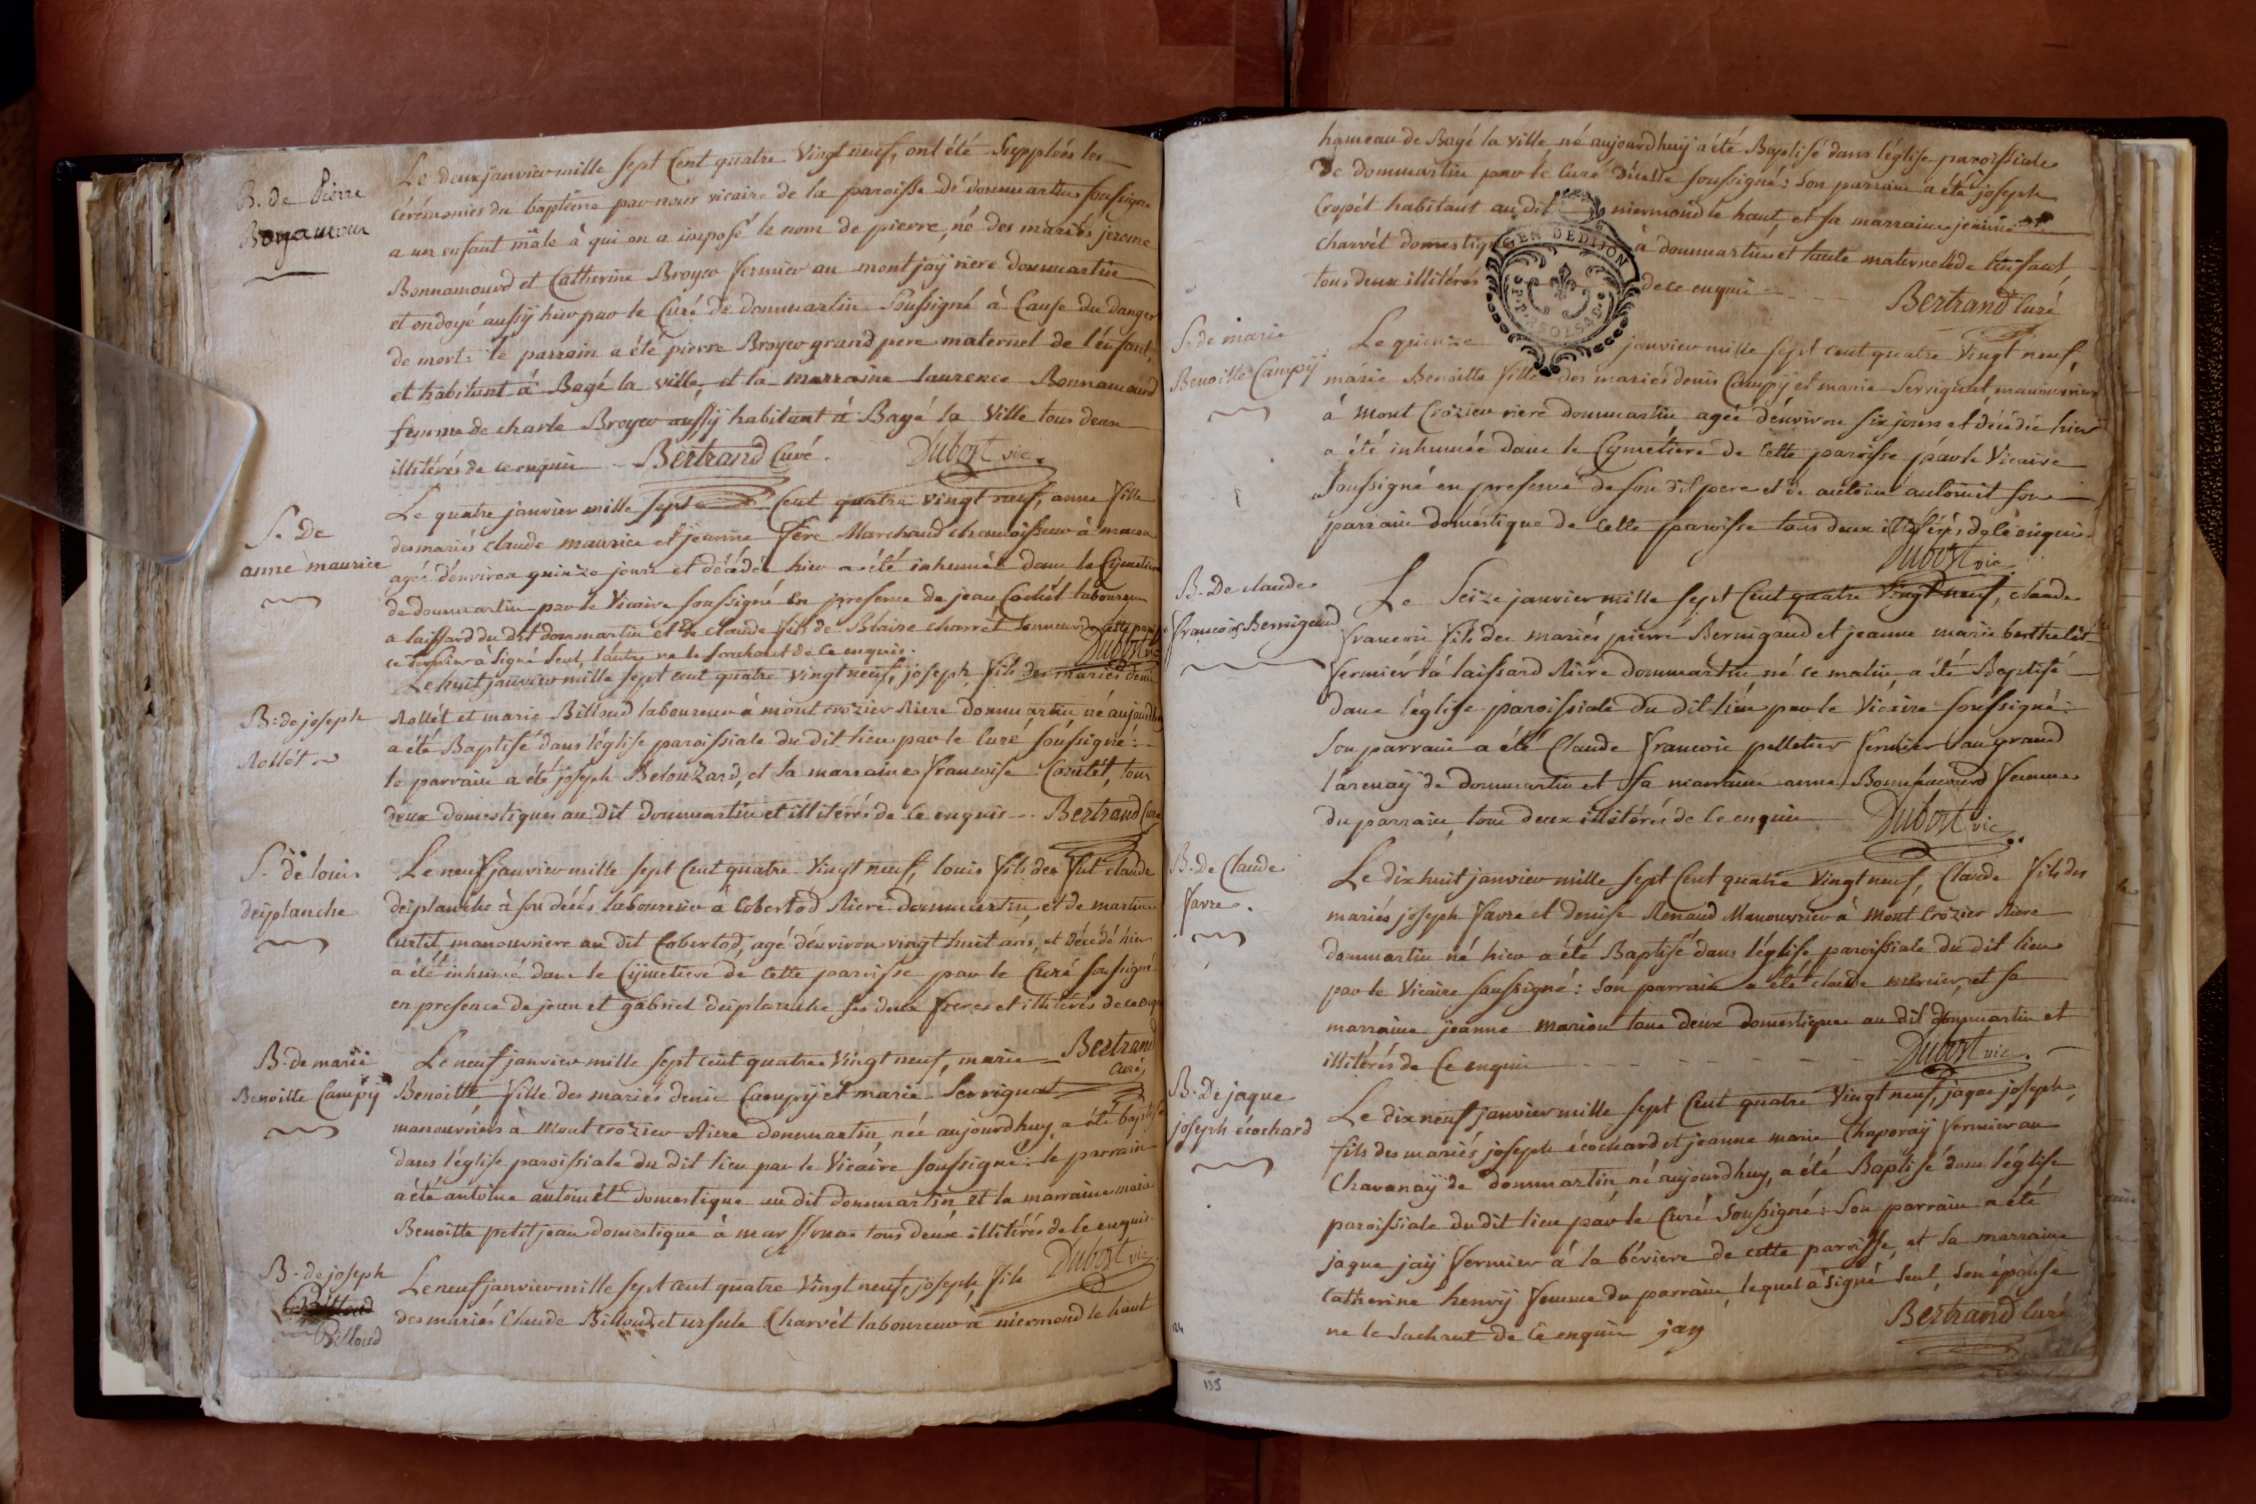 B. de Pierre
Bonamour
Le deux janvier mille sept Cent quatre Vingt neuf, ont été Suppléés les
cérémonies du baptême par nous vicaire de la paroisse de dommartin soussigné
a un enfant mâle à qui on a imposé le nom de pierre, né des mariés jerome
Bonnamourd et Catherine Broyer fermier au montjaÿ riere dommartin
et ondoyé aussÿ hier par le Curé de dommartin Soussigné à Cause du danger
de mort: le parrain a été pierre Broyer grand pere maternel de l'énfant,
et habitant à Bagé la ville, et la marraine laurence Bonnamourd
femme de charle Broyer aussÿ habitant à Bagé la Ville tous deux
illitérés de ce enquis - Bertrand Curé. Dubost vic.
S. De
anne maurice
Le quatre janvier mille sept Cent quatre vingt neuf, anne fille
des mariés claude maurice et jeanne fére Marchand chamoisseur à macon
agée d'énviron quinze jours et décédée hier a été inhumée dans le Cÿmetiere
de dommartin par le Vicaire soussigné En presence de jean Cochét laboureur
a laissard du dit dommartin et de claude fils de Blaise charvet
ce dernier à signé seul, l'autre ne le sachant de Ce enquis. Dubost vic
B: de joseph
Rollét
Le huit janvier mille sept cent quatre vingt neuf, joseph fils des mariés denis
Rollét et marie Billoud laboureur à mont crozier Riere dommartin né aujourdhuÿ
a été Baptisé dans l'église paroissiale du dit lieu par le Curé soussigné:
le parrain a été joseph Belouzard, et la marraine francoise Coutét, tous
deux domestiques au dit dommartin et illitérés de Ce enquis - Bertrand Curé
S. de louis
desplanche
Le neuf janvier mille sept Cent quatre Vingt neuf, louis fils des fut claude
desplanche à son décés laboureur à Cobertod Riere dommartin, et de martine
Curtil manouvriere au dit Cobertod, agé d'énviron vingt huit ans, et décédé hier
a été inhumé dans le Cÿmetiere de cette paroisse par le Curé soussigné
en presence de jean et gabriel desplanche ses deux freres et illitérés de ce enquis
Bertrand
Curé
B. de marie
Benoitte Campÿ
Le neuf janvier mille sept cent quatre Vingt neuf, marie
Benoitte fille des mariés denis Campÿ et marie Servignat
manouvriers à Mont crozier Riere dommartin née aujourdhuÿ, a été baptisée
dans l'église paroissiale du dit lieu par le Vicaire soussigné: le parrain
a été antoine antoinét domestique au dit dommartin et la marraine marie
Benoitte petitjean domestique à marssonas tous deux illitérés de Ce enquis
Dubost vic.
B. de joseph
Billoud
Le neuf janvier mille sept cent quatre Vingt neuf, joseph fils
des mariés Claude Billoud et ursule Charvét laboureur à niermond le haut
hameau de Bagé la ville né aujourdhuÿ a été Baptisé dans l'église paroissiale
de dommartin par le Curé soussigné: son parrain a été joseph
Cropét habitant au dit niermond le haut, et sa marraine jeanne
Charvét domestiq à dommartin et tante maternelle de l'énfant
tous deux illitérés de ce enquis Bertrand Curé
GEN DE DIJON
S. de marie
Benoitte Campÿ
Le quinze janvier mille sept cent quatre Vingt neuf,
marie Benoitte fille des mariés denis Campÿ et marie Servignat manouvriers
à Mont Crozier riere dommartin agée d'énviron six jours et décédée hier
a été inhumée dans le Cÿmetiere de Cette paroisse par le Vicaire
soussigné en presence de son dit pere et de antoine antoinét son
parrain domestique de Cette paroisse tous deux illitérés de Ce enquis
Dubost vic
B. De claude
francois Bernigaud
Le Seize janvier mille sept Cent quatre Vingt neuf, claude
francois fils des mariés pierre Bernigaud et jeanne marie berthelét
fermier à laissard Riere dommartin né ce matin, a été Baptisé
dans l'église paroissiale du dit lieu par le Vicaire soussigné:
son parrain a été Claude francois pelletier fermier au grand
l'arenaÿ de dommartin et sa marraine anne Bonnamourd femme
du parrain, tous deux illitérés de Ce enquis Dubost vic
B. de Claude
favre.
Le dix huit janvier mille sept Cent quatre Vingt neuf, Claude fils des
mariés joseph favre et denise Renaud Manouvrier à Mont Crozier Riere
dommartin né hier a été Baptisé dans l'église paroissiale du dit lieu
par le Vicaire soussigné: son parrain a été claude mercier, et sa
marraine jeanne marion tous deux domestiques au dit dommartin et
illitérés de Ce enquis Dubost vic.
B. de jaque
joseph écochard
Le dix neuf janvier mille sept Cent quatre Vingt neuf, jaque joseph,
fils des mariés joseph écochard et jeanne marie Chaporaÿ fermier au
Chavanaÿ de dommartin né aujourdhuÿ, a été Baptisé dans l'église
paroissiale du dit lieu par le Curé soussigné: son parrain a été
jaque jaÿ fermier à la béviere de cette paroisse, et sa marraine
Catherine henrÿ femme du parrain, lequel à signé seul, son épouse
ne le sachant de Ce enquis jaÿ Bertrand Curé
135